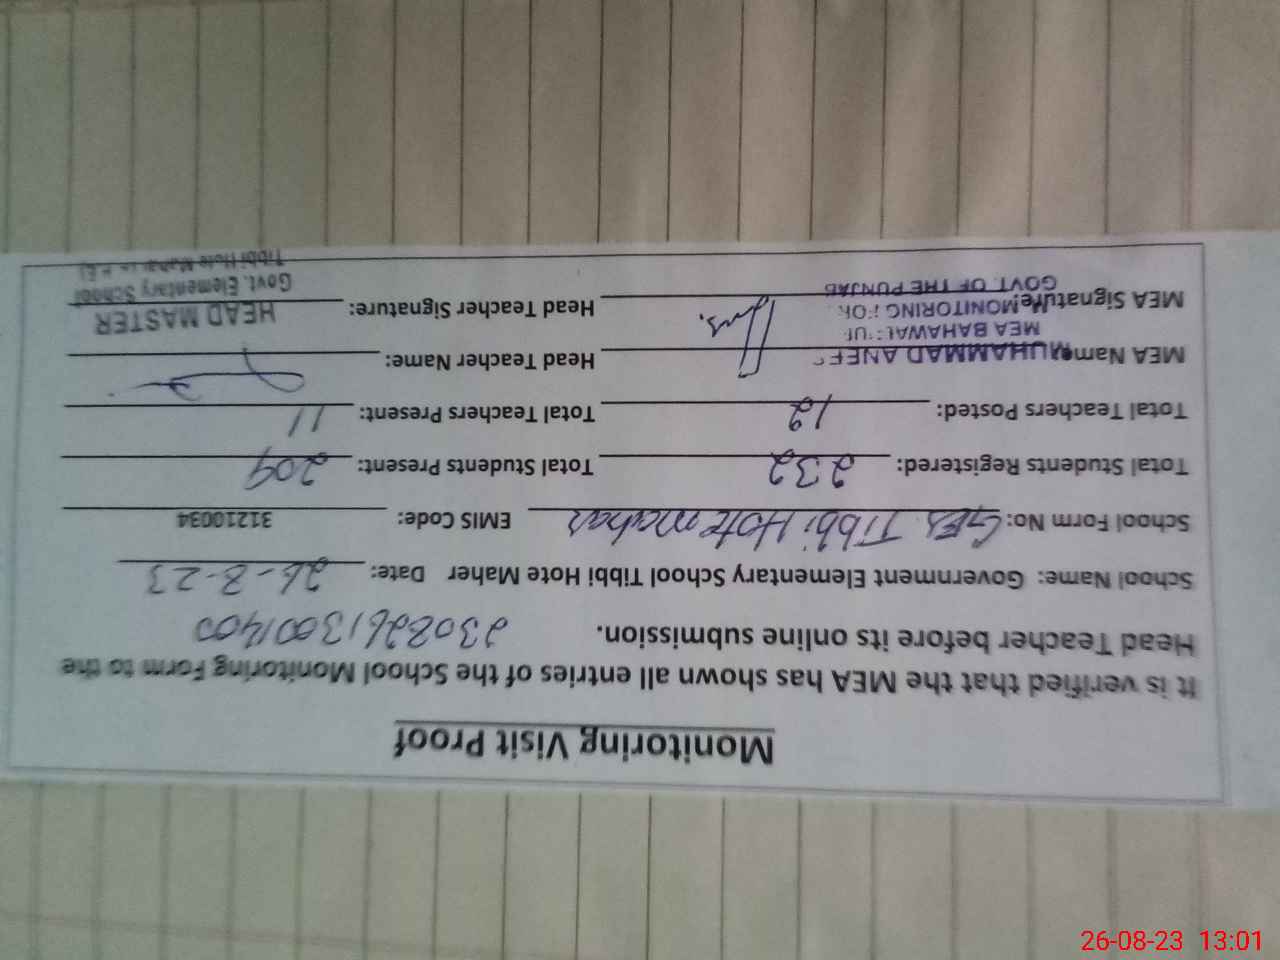 Monitoring Visit Proof
It is verified that the MEA has shown all entries of the School Monitoring Form to the
Head Teacher before its online submission. 23082613001400
School Name: Government Elementary School Tibbi Hote Maher Date: 26-8-23
School Form No: GES Tibbi Hote mahar EMIS Code: 31210034
Total Students Registered: 232 Total Students Present: 209
Total Teachers Posted: 12 Total Teachers Present: 11
MEA Name: MUHAMMAD Head Teacher Name:
MEA BAHAWAL
MONITORING
MEA Signature: Head Teacher Signature: HEAD MASTER
GOVT. OF THE PUNJAB Govt. Elementary School
Tibbi Hote
26-08-23 13:01